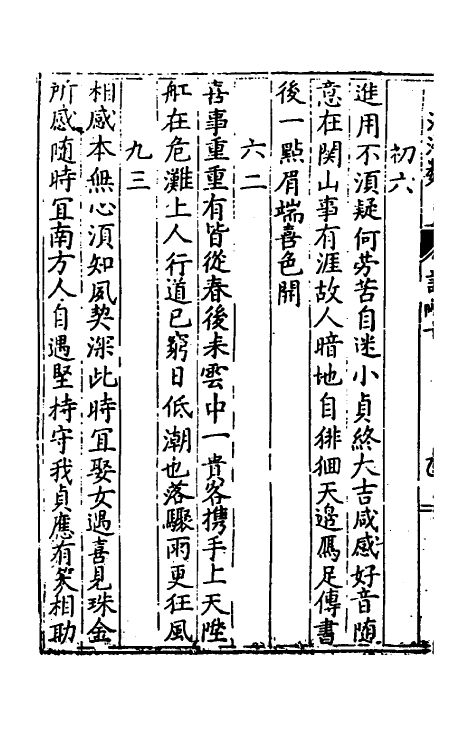 初六
進用不須疑何勞苦自迷小貞終大吉咸感好音随
意在関山事有涯故人暗地自徘徊天邉鴈足傳書
後一點眉端喜色開
六二
喜事重重有皆從春後来雲中一貴客携手上天陛
舡在危灘上人行道已窮日低潮也落驟雨更狂風
九三
相感本無心須知夙契深此時宜娶女遇喜見珠金
所感随時宜南方人自遇堅持守我貞應有笑相助